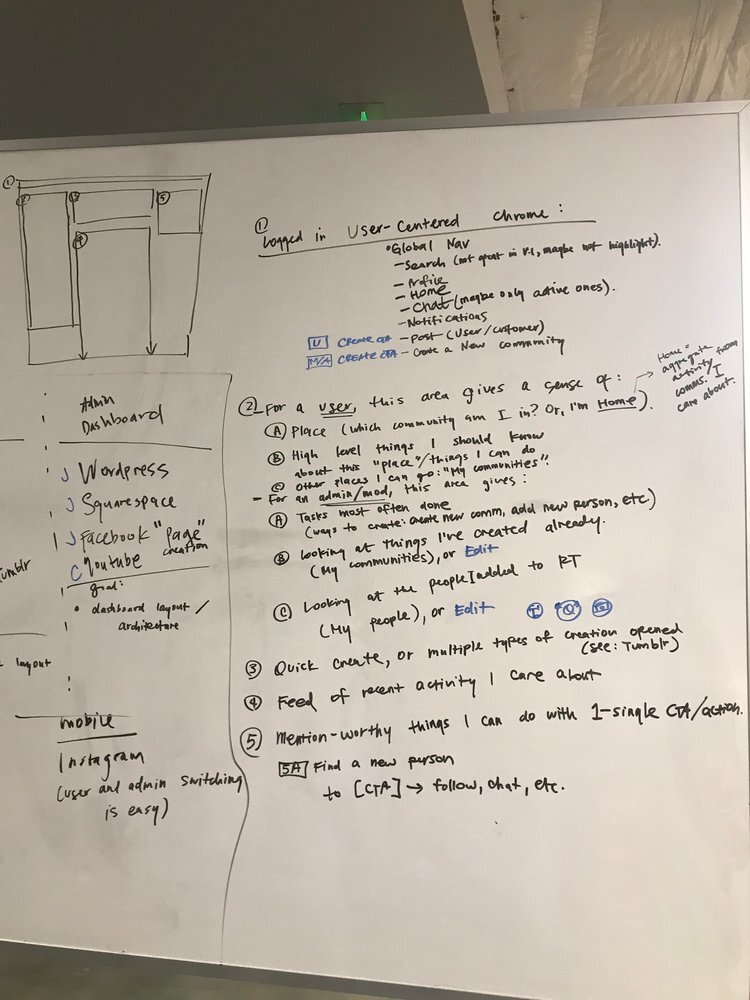 ①
②
③
⑤
④
Admin
Dashboard
Wordpress
Squarespace
Facebook "page"
creation
Youtube
goal:
• dashboard layout /
architecture
Tumblr
layout
mobile
Instagram
(user and admin switching
is easy)
①
Logged in User-Centered Chrome:
• Global Nav
- Search (not great in V.1, maybe not highlight).
- Profile
- Home
- Chat (maybe only active ones).
- Notifications
U CREATE CTA - Post (User/customer)
M/A CREATE CTA - Create a New community
② For a user, this area gives a sense of:
Ⓐ Place (which community am I in? Or, I'm Home).
Home =
aggregate
activity from
comms. I
care about.
Ⓑ High level things I should know
about this "place"/things I can do
Ⓒ Other places I can go: "My communities".
- For an admin/mod, this area gives:
Ⓐ Tasks most often done
(ways to create: create new comm, add new person, etc)
Ⓑ Looking at things I've created already.
(My communities), or Edit
Ⓒ Looking at the people I added to RT
(My people), or Edit
③ Quick Create, or multiple types of creation opened
(see: Tumblr)
④ Feed of recent activity I care about
⑤ Mention-worthy things I can do with 1-single CTA/action.
5A Find a new person
to [CTA] → follow, chat, etc.